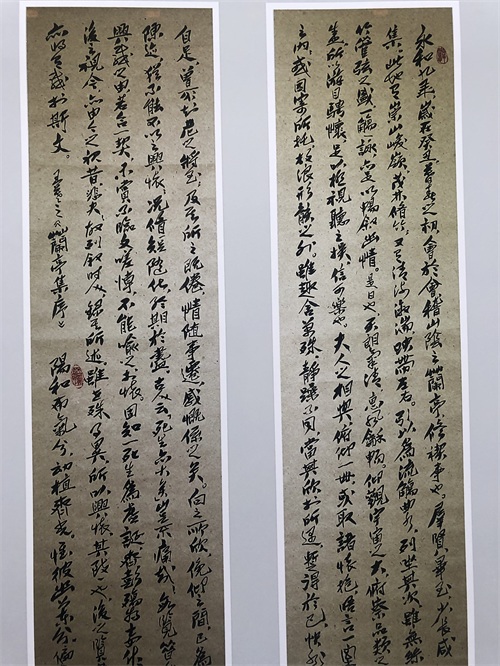 永和九年歲在癸丑暮春之初會於會稽山陰之蘭亭修禊事也羣賢畢至少長咸
集此地有崇山峻嶺茂林修竹又有清流激湍映帶左右引以為流觴曲水列坐其次雖無絲
竹管弦之盛一觴一詠亦足以暢敘幽情是日也天朗氣清惠風龢暢仰觀宇宙之大俯察品類之
盛所以遊目騁懷足以極視聽之娛信可樂也夫人之相與俯仰一世或取諸懷抱悟言一室
之內或因寄所託放浪形骸之外雖趣舍萬殊靜躁不同當其欣於所遇暫得於己快然
自足曾不知老之將至及其所之既倦情隨事遷感慨係之矣向之所欣俛仰之間已為
陳迹猶不能不以之興懷況修短隨化終期於盡古人云死生亦大矣豈不痛哉每覽昔
興感之由若合一契未嘗不臨文嗟悼不能喻之於懷固知一死生為虛誕齊彭殤為妄作
後之視今亦由今之視昔悲夫故列敘時人錄其所述雖世殊事異所以興懷其致一也後之覽
亦將有感於斯文。王羲之之蘭亭集序也 陽和布氣兮動植齊成怪彼幽蘭兮偏